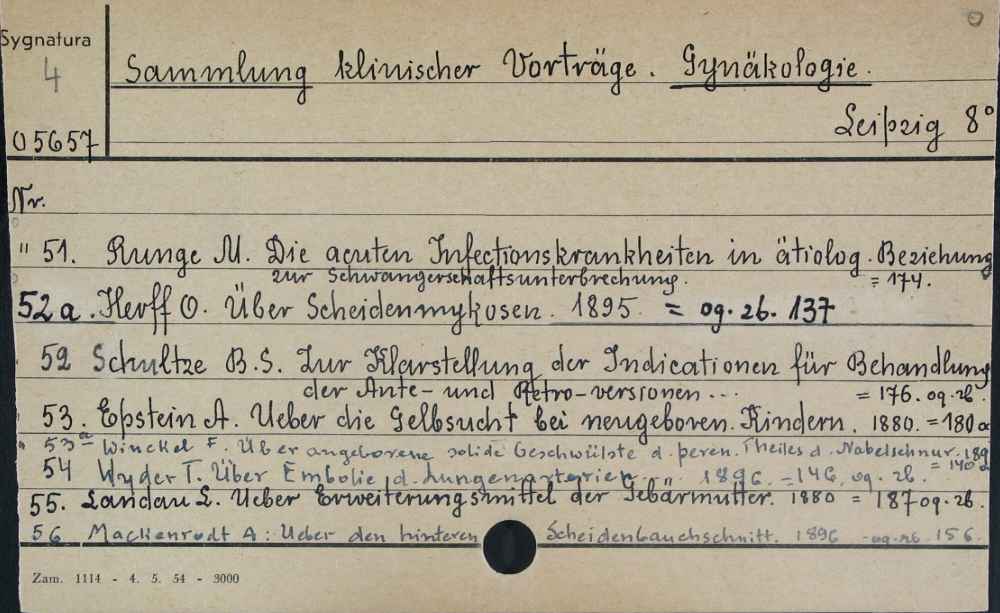 Sygnatura
4
05657
Sammlung klinischer Vorträge. Gynäkologie.
Leipzig 8°
Nr.
" 51. Runge M. Die acuten Infectionskrankheiten in ätiolog. Beziehung
zur Schwangerschaftsunterbrechung. = 174.
52a. Herff O. Über Scheidenmykosen. 1895. = og. zb. 137
52 Schultze B.S. Zur Klarstellung der Indicationen für Behandlung
der Ante- und Retro-versionen ... = 176. og. zb.
53. Epstein A. Ueber die Gelbsucht bei neugeboren. Kindern. 1880. = 180
" 53a Winckel F. Über angeborene solide Geschwülste d. peren. Theiles d. Nabelschnur. 189
= 140
54 Wyder T. Über Embolie d. Lungenarterien ... 1896. = 146. og. zb.
55. Landau L. Ueber Erweiterungsmittel der Gebärmutter. 1880 = 187 og. zb.
56 Mackenrodt A: Ueber den hinteren Scheidenbauchschnitt. 1896 - og. zb. 156.
Zam. 1114 - 4. 5. 54 - 3000